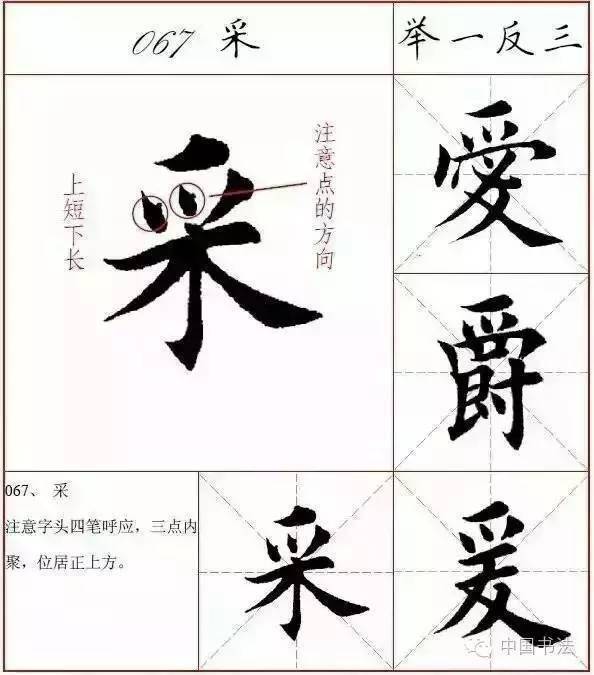 067 采
举一反三
采
上短下长
注意点的方向
愛
爵
067、 采
注意字头四笔呼应，三点内
聚，位居正上方。
采
爰
中国书法